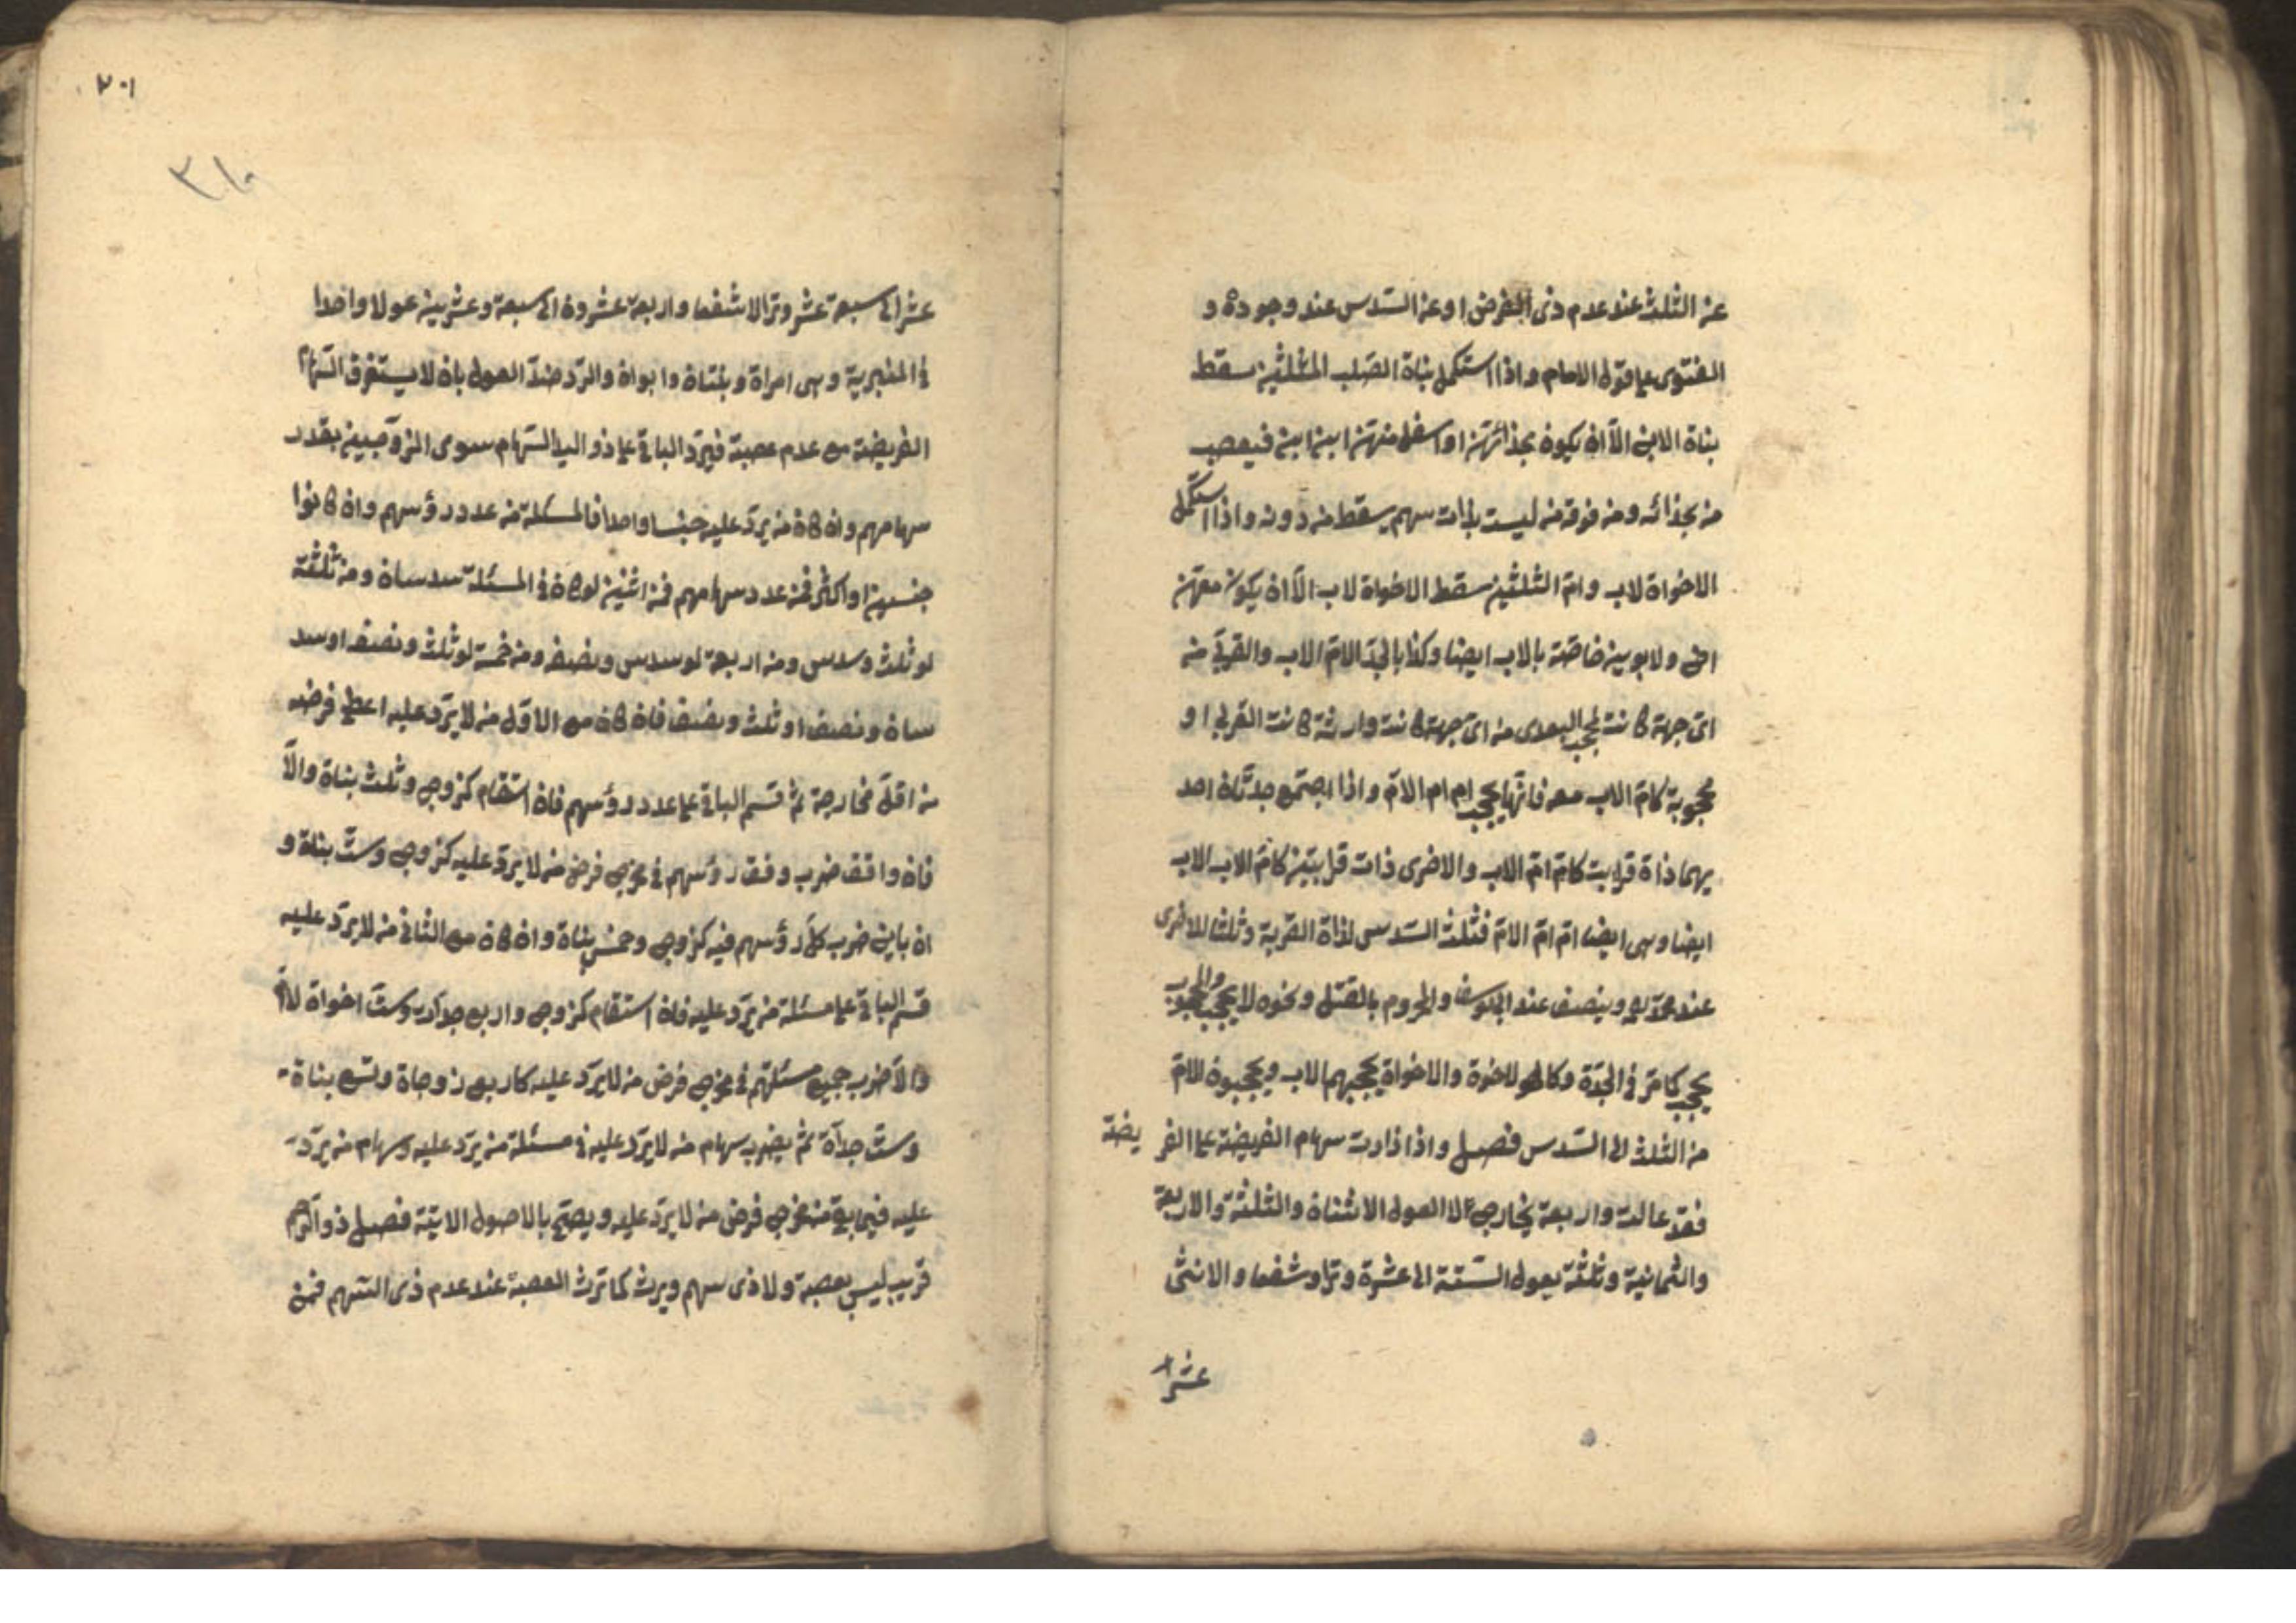 عن الثلث عند عدم ذى الفرض او عن السّدس عند وجوده و
الفتوى على قول الامام واذا استكمل بناة الصّلب الثلثين سقط
بناة الابن الّا ان يكون بحذائهنّ او اسفل منهنّ ابن ابن فيعصب
من بحذائه ومن فوقه من ليست بذات سهم يسقط من دونه واذا استكمل
الاخواة لاب وامّ الثلثين سقط الاخواة لاب الّا ان يكون معهنّ
اخ ولابوين خاصّة بالاب ايضا وكذا بالجدّ الا امّ الاب والقربى من
اىّ جهة كانت تحجب البعدى من اىّ جهة كانت وارثة كانت القربى او
محجوبة كامّ الاب معه فانّها يحجب ام ام الامّ واذا اجتمع جدتان احد
يهما ذاة قرابت كام امّ الاب والاخرى ذات قرابتين كامّ الاب الاب
ايضا وهى ايضا امّ امّ الامّ فثلث السّدس لذاة القربة وثلثا للاخرى
عند محمّد وينصف عند ابى يوسف والمحروم بالقتل ونحوه لا يحجب والمحجوب
يحجب كما مرّ فى الجدّة وكالاخوة والاخواة يحجبهم الاب ويحجبون الامّ
من الثلث الى السّدس فصل واذا زادت سهام الفريضة على الفر يضة
فقد عالت واربعة مخارج لا العول الاثنان والثلثة والاربعة
والثمانية وثلثة يعول السّتة الى عشرة وترا وشفعا والاثنى
عشر
٣٠١
٣١٠
عشر الى سبعة عشر وترا لا شفعا واربعة عشرون الى سبعة وعشرين عولا واحدا
فى المنبرية وهى امراة وبنتان وابوان والرّد ضدّ العول بان لا يستغرق السّهام
الفريضة مع عدم عصبة فيردّ الباقى على ذو اليد السّهام سوى الزوجين بقدر
سهامهم وان كان من يردّ عليه جنسا واحدا فالمسئلة من عدد رؤسهم وان كانوا
جنسين او اكثر فمن عدد سهامهم فمن اثنين لو كان فى المسئلة سدسان ومن ثلثة
لو ثلث وسدس ومن اربعة لو سدس ونصف ومن خمسة لو ثلث ونصف او سد
سان ونصف او ثلث ونصف فان كان مع الاوّل من لا يردّ عليه اعطى فرضه
من اقلّ مخارجة ثمّ قسم الباقى على عدد رؤسهم فان استقام كزوج وثلث بناة والّا
فان وافق ضرب وفق رؤسهم فى مخرج فرض من لا يردّ عليه كزوج وستّ بناة و
ان باين ضرب كلّ رؤسهم فيه كزوج وخمس بناة وان كان مع الثانى من لا يردّ عليه
قسم الباقى على مسئلة من يردّ عليه فان استقام كزوج واربع جدّات وستّ اخواة لامّ
والّا ضرب جميع مسئلتهم فى مخرج فرض من لا يردّ عليه كاربع زوجاة وتسع بناة
وستّ جدّاة ثمّ يضرب سهام من لا يردّ عليه فى مسئلة من يردّ عليه وسهام من يردّ
عليه فيما بقى من مخرج فرض من لا يردّ عليه ويصحّ بالاصول الاتية فصل ذو الرّحم
قريب ليس بعصبة ولا ذى سهم ويرث كما ترث العصبة عند عدم ذى السّهم فمن